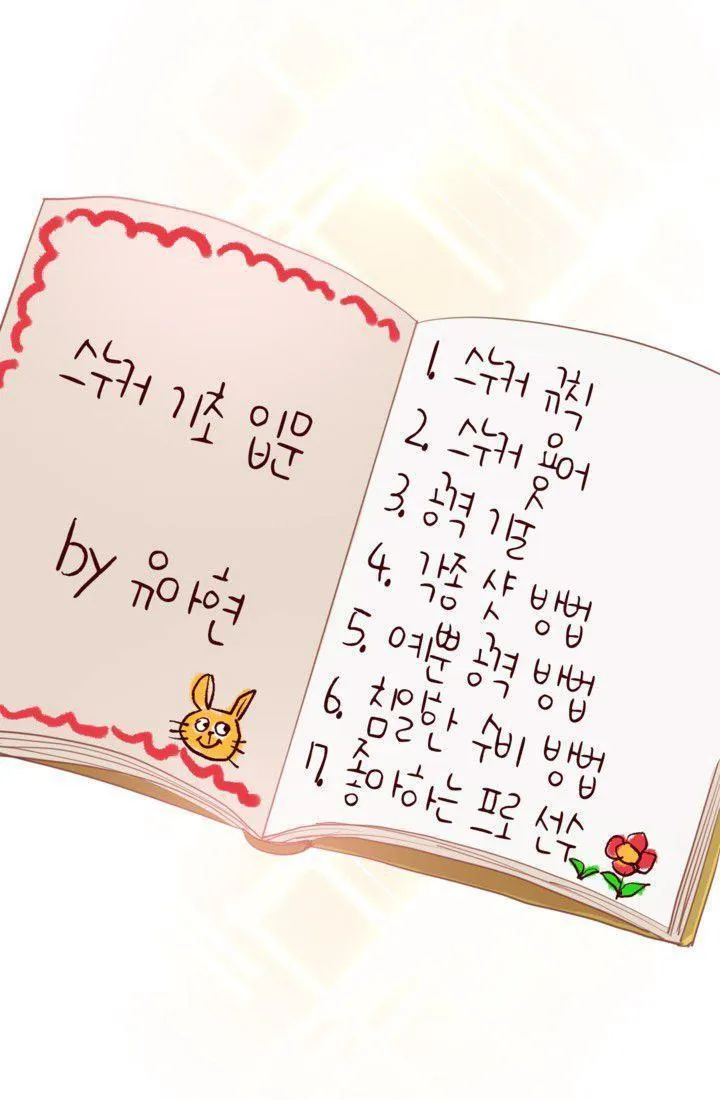 스누커 기초 입문
by 유아현
1. 스누커 규칙
2. 스누커 용어
3. 공격 기술
4. 각종 샷 방법
5. 예쁜 공격 방법
6. 치밀한 수비 방법
7. 좋아하는 프로 선수